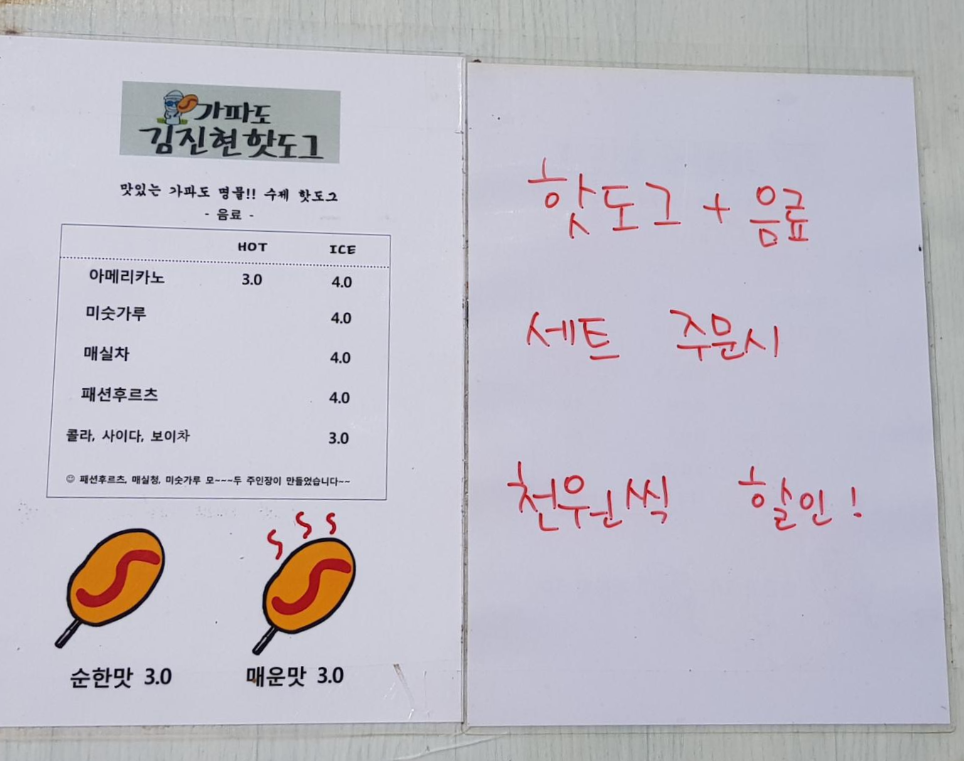 가파도
김진현핫도그
맛있는 가파도 명물!! 수제 핫도그
- 음료 -
HOT ICE
아메리카노 3.0 4.0
미숫가루 4.0
매실차 4.0
패션후르츠 4.0
콜라, 사이다, 보이차 3.0
☺ 패션후르츠, 매실청, 미숫가루 모---두 주인장이 만들었습니다--
순한맛 3.0 매운맛 3.0
핫도그 + 음료
세트 주문시
천원씩 할인!